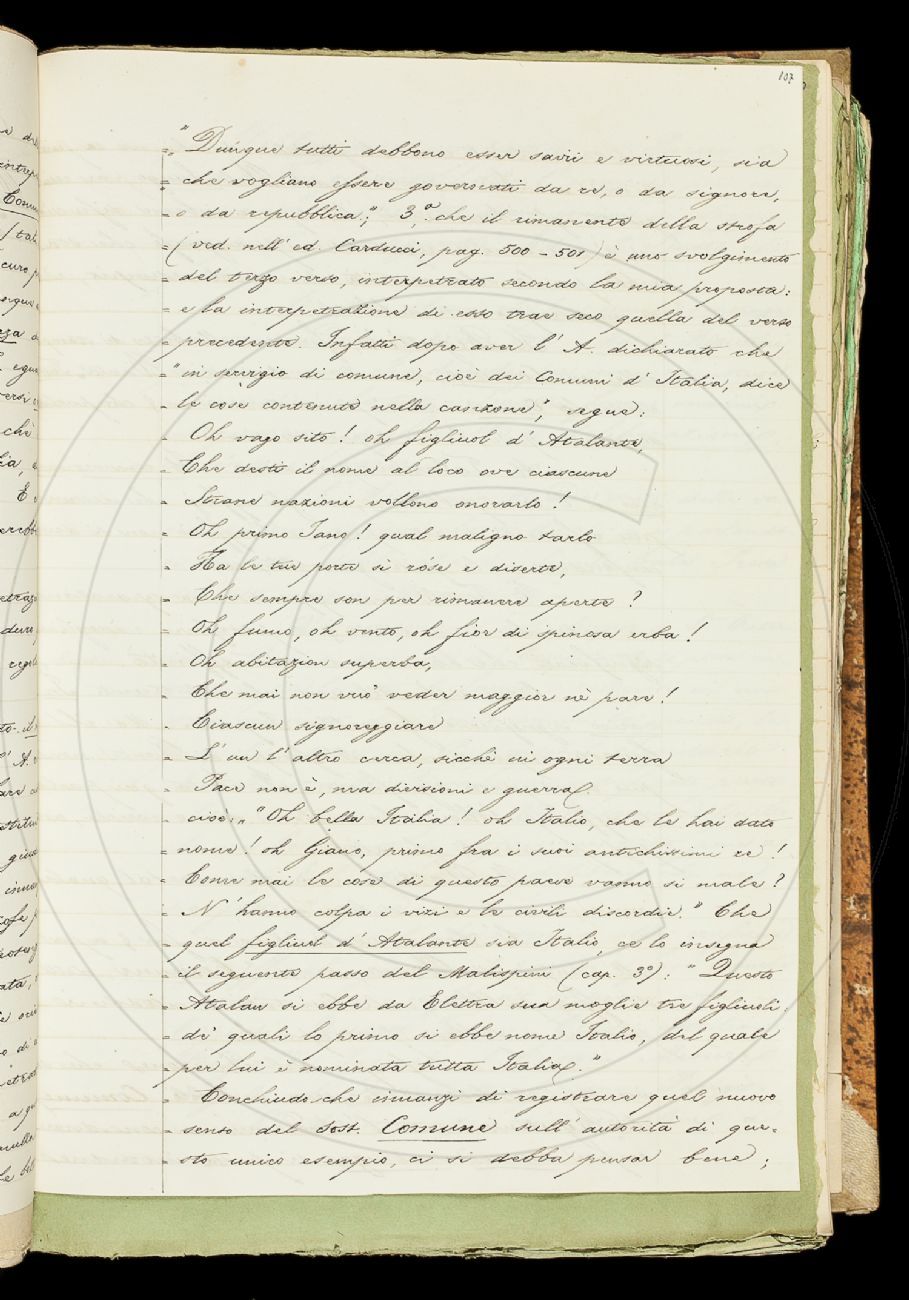 107
" Dunque tutti debbono esser savii e virtuosi, sia
che vogliano essere governati da re, o da signore,
o da repubblica"; 3.º che il rimanente della strofa
(ved. nell' ed. Carducci, pag. 500 - 501) è uno svolgimento
del terzo verso, interpetrato secondo la mia proposta:
e la interpetrazione di esso trae seco quella del verso
precedente. Infatti dopo aver l' A. dichiarato che
" in servigio di comune, cioè dei Comuni d' Italia, dice
le cose contenute nella canzone", segue:
Oh vago sito! oh figliuol d' Atalante,
Che desti il nome al loco ove ciascune
Strane nazioni vollono onorarlo!
Oh primo Iano! qual maligno tarlo
Ha le tue porte sì róse e diserte,
Che sempre son per rimanere aperte?
Oh fumo, oh vento, oh fior di spinosa erba!
Oh abitazion superba,
Che mai non vuo' veder maggior nè pare!
Ciascun signoreggiare
L' un l' altro cerca, sicchè in ogni terra
Pace non è, ma divisioni e guerra.
cioè: " Oh bella Italia! oh Italo, che le hai dato
nome! oh Giano, primo fra i suoi antichissimi re!
Come mai le cose di questo paese vanno sì male?
N' hanno colpa i vizi e le civili discordie." Che
quel figliuol d' Atalante sia Italo, ce lo insegna
il seguente passo del Malispini (cap. 3º): " Questo
Atalan si ebbe da Elettra sua moglie tre figliuoli,
de' quali lo primo si ebbe nome Italo, del quale
per lui è nominata tutta Italia."
Conchiudo che innanzi di registrare quel nuovo
senso del sost. Comune sull' autorità di que-
sto unico esempio, ci si debba pensar bene;